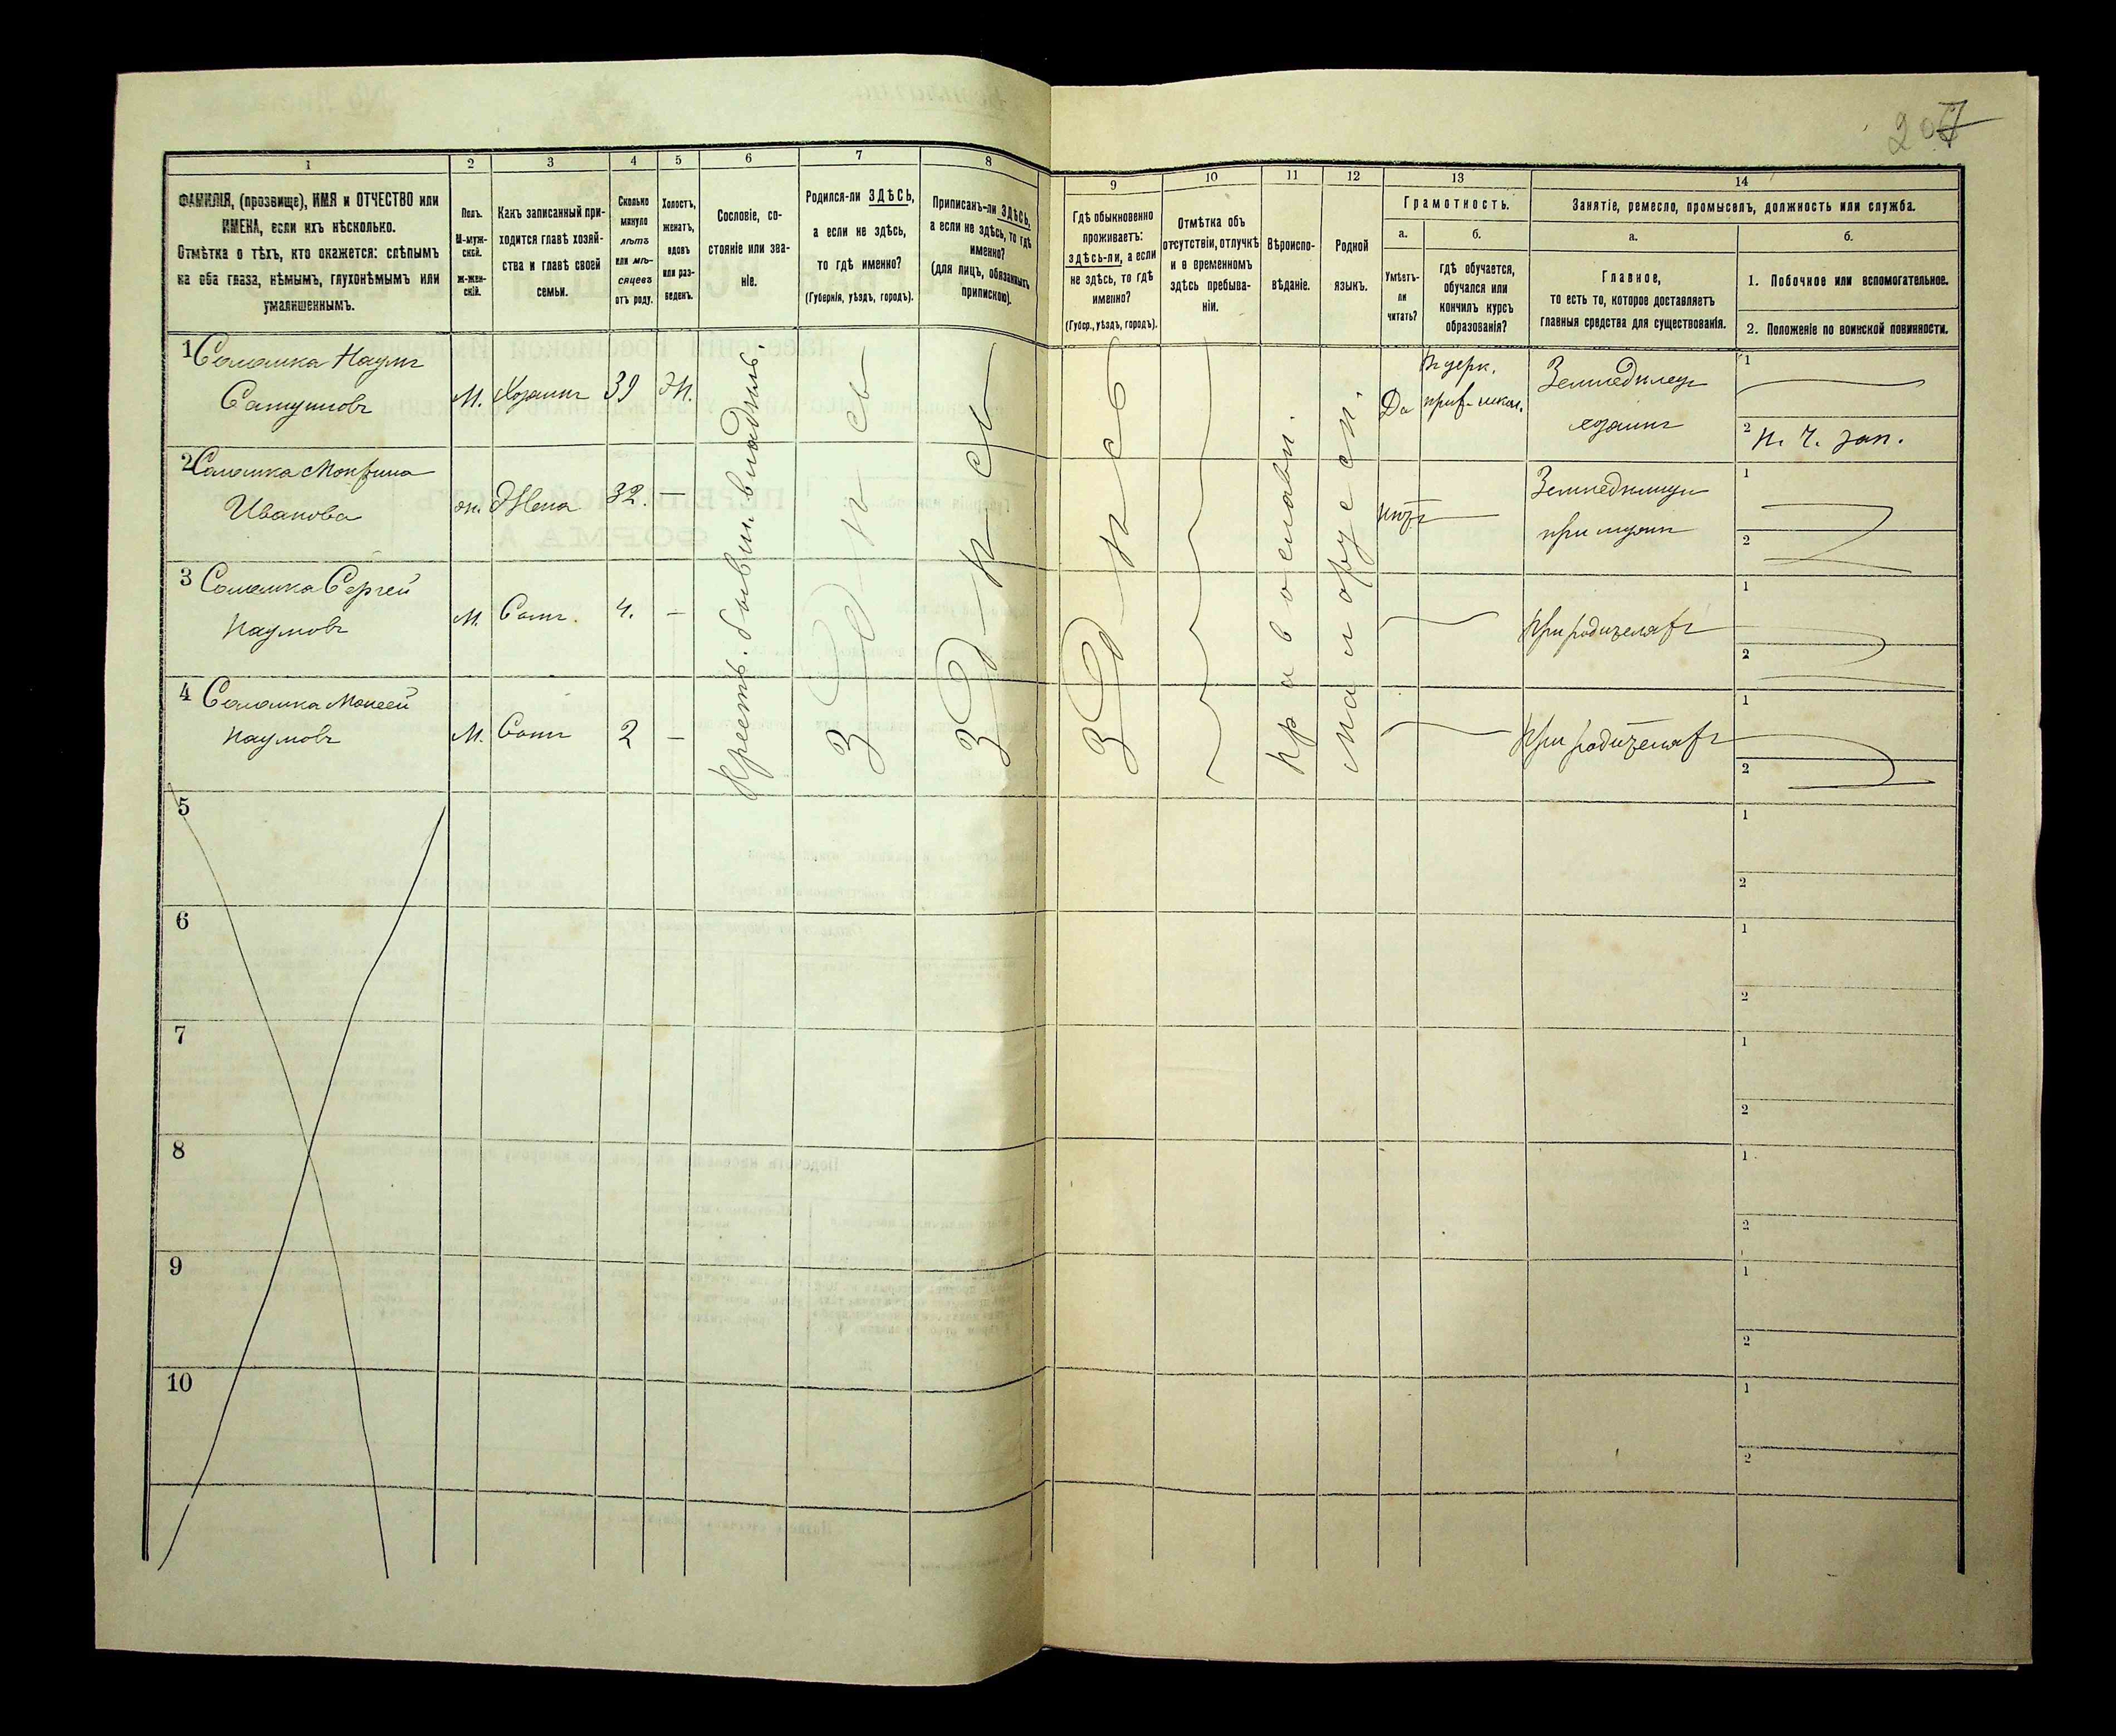 207
1
2
3
4
5
6
7
8
9
10
11
12
13
14
ФАМИЛІЯ, (прозвище), ИМЯ и ОТЧЕСТВО или
ИМЕНА, если ихъ нѣсколько.
Отмѣтка о тѣхъ, кто окажется: слѣпымъ
на оба глаза, нѣмымъ, глухонѣмымъ или
умалишеннымъ.
Полъ.
М-муж-
ской.
ж-жен-
скій.
Какъ записанный при-
ходится главѣ хозяй-
ства и главѣ своей
семьи.
Сколько
минуло
лѣтъ
или мѣ-
сяцевъ
отъ роду.
Холостъ,
женатъ,
вдовъ
или раз-
веденъ.
Сословіе, со-
стояніе или зва-
ніе.
Родился-ли ЗДѢСЬ,
а если не здѣсь,
то гдѣ именно?
(Губернія, уѣздъ, городъ).
Приписанъ-ли ЗДѢСЬ,
а если не здѣсь, то гдѣ
именно?
(для лицъ, обязанныхъ
припискою).
Гдѣ обыкновенно
проживаетъ:
здѣсь-ли, а если
не здѣсь, то гдѣ
именно?
(Губер., уѣздъ, городъ).
Отмѣтка объ
отсутствіи, отлучкѣ
и о временномъ
здѣсь пребыва-
ніи.
Вѣроиспо-
вѣданіе.
Родной
языкъ.
Грамотность.
а.
Умѣетъ-
ли
читать?
б.
гдѣ обучается,
обучался или
кончилъ курсъ
образованія?
Занятіе, ремесло, промыселъ, должность или служба.
а.
Главное,
то есть то, которое доставляетъ
главныя средства для существованія.
б.
1. Побочное или вспомогательное.
2. Положеніе по воинской повинности.
1 Наумъ
М. Хозяинъ 39 Ж.
Да
Земледѣлецъ
хозяинъ
1
2
2
Иванова
ж. Жена 32. —
нѣтъ
при мужѣ
1
2
3 Сергей
Наумовъ
М. Сынъ. 4. —
При родителяхъ
1
2
4 Моисей
Наумовъ
М. Сынъ 2 —
При родителяхъ
1
2
Здѣсь
Здѣсь
Здѣсь
Православн.
Малорусск.
5
1
2
6
1
2
7
1
2
8
1
2
9
1
2
10
1
2